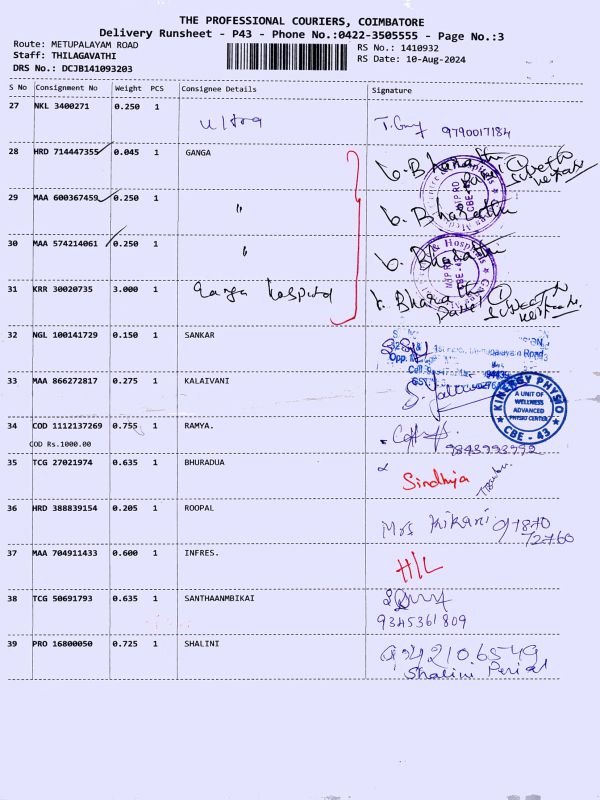 THE PROFESSIONAL COURIERS, COIMBATORE
Delivery Runsheet - P43 - Phone No.:0422-3505555 - Page No.:3
Route: METUPALAYAM ROAD
Staff: THILAGAVATHI
DRS No.: DCJB141093203
RS No.: 1410932
RS Date: 10-Aug-2024
S No Consignment No Weight PCS Consignee Details Signature
27 NKL 3400271 0.250 1 Ultra 9790017184
28 HRD 714447355 0.045 1 GANGA G. Bharathi
29 MAA 600367459 0.250 1 〃 G. Bharathi
30 MAA 574214061 0.250 1 〃 G. Bharathi
31 KRR 30020735 3.000 1 Ganga hospital G. Bharathi
32 NGL 100141729 0.150 1 SANKAR
33 MAA 866272817 0.275 1 KALAIVANI
KINERGY PHYSIO
A UNIT OF
WELLNESS
ADVANCED
PHYSIO CENTER
CBE - 43
34 COD 1112137269 0.755 1 RAMYA. 9843993992
COD Rs.1000.00
35 TCG 27021974 0.635 1 BHURADUA Sindhuja
36 HRD 388839154 0.205 1 ROOPAL Mrs Kikani 97870
72760
37 MAA 704911433 0.600 1 INFRES. H/L
38 TCG 50691793 0.635 1 SANTHAANMBIKAI
9345361809
39 PRO 16800050 0.725 1 SHALINI
Shalini